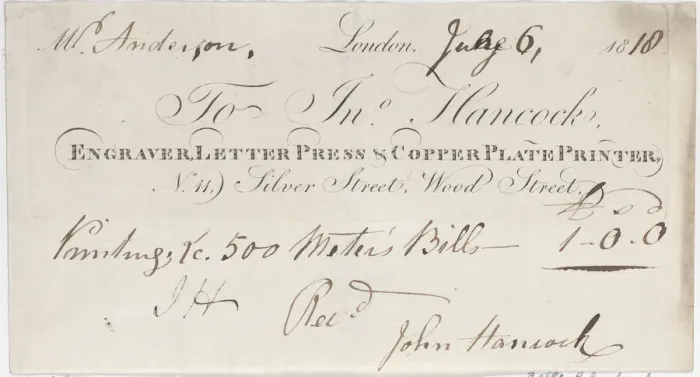 Mr. Anderson, London, July 6, 1818
To Jno. Hancock,
ENGRAVER, LETTER PRESS & COPPER PLATE PRINTER,
No. 11, Silver Street, Wood Street,
£ s d
Printing &c. 500 Meter's Bills — 1-0-0
JH Recd
John Hancock